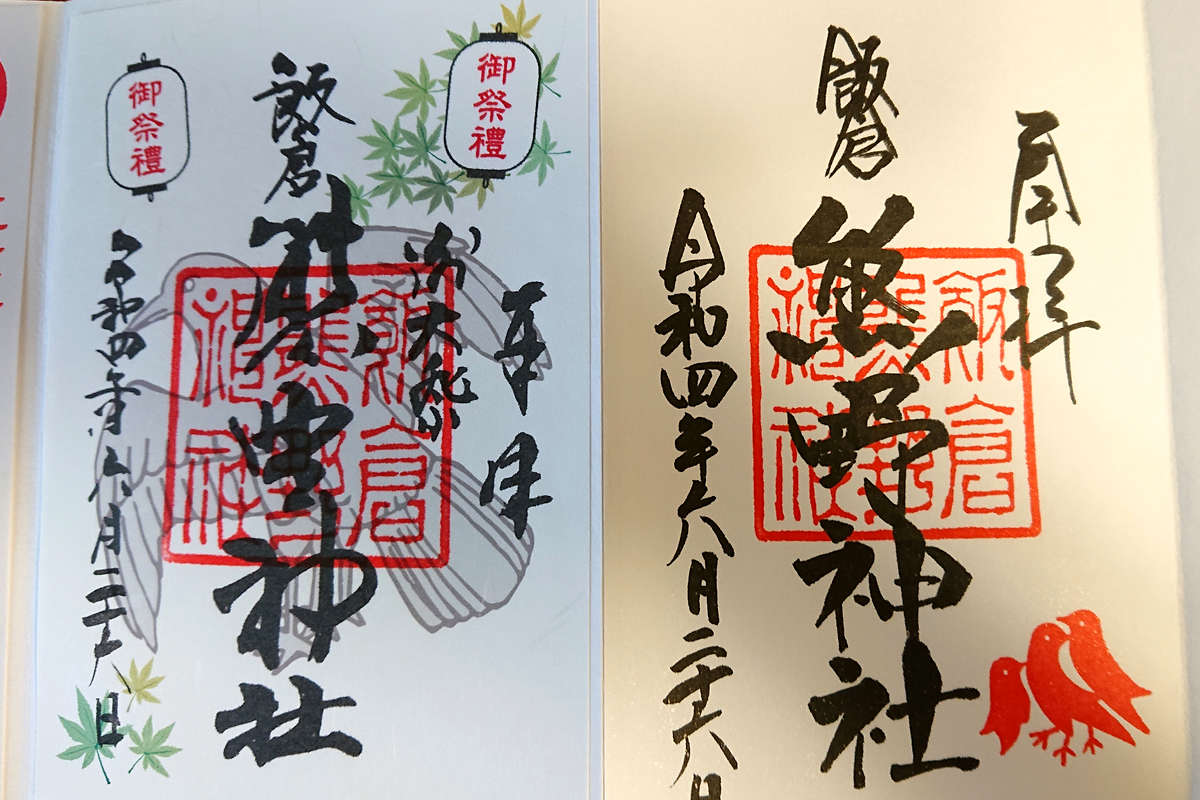 奉拝
飯倉
熊野神社
令和四年六月二十六日
飯倉
熊野
神社
御祭禮
奉拝
例大祭
飯倉
熊野神社
令和四年六月二十六日
御祭禮
飯倉
熊野
神社